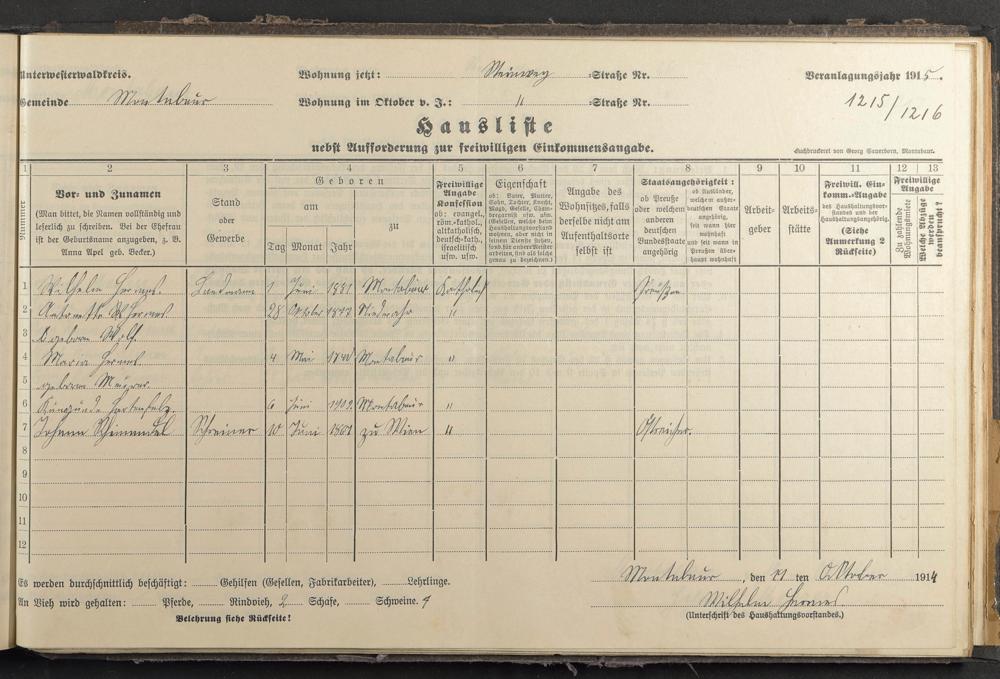 Unterwesterwaldkreis. Wohnung jetzt: Steinweg =Straße Nr. Veranlagungsjahr 1915.
Gemeinde Montabaur Wohnung im Oktober v. J.: " =Straße Nr. 1215/1216
Hausliste
nebst Aufforderung zur freiwilligen Einkommensangabe.
Buchdruckerei von Georg Sauerborn, Montabaur.
1 2 3 4 5 6 7 8 9 10 11 12 13
Nummer
Vor- und Zunamen
(Man bittet, die Namen vollständig und
leserlich zu schreiben. Bei der Ehefrau
ist der Geburtsname anzugeben, z. B.
Anna Apel geb. Becker.)
Stand
oder
Gewerbe
Geboren
am
zu
Tag Monat Jahr
Freiwillige
Angabe
Konfession
ob: evangel.,
röm.-kathol.,
altkatholisch,
deutsch-kath.,
israelitisch
usw. usw.
Eigenschaft
ob: Vater, Mutter,
Sohn, Tochter, Knecht,
Magd, Geselle, Cham-
bregarnist usw. usw.
(Gesellen, welche beim
Haushaltungsvorstand
wohnen, aber nicht in
seinem Dienste stehen,
sond. für andere Meister
arbeiten, sind als solche
genau zu bezeichnen.)
Angabe des
Wohnsitzes, falls
derselbe nicht am
Aufenthaltsorte
selbst ist
Staatsangehörigkeit:
ob Preuße
oder welchem
anderen
deutschen
Bundesstaate
angehörig
ob Ausländer,
welchem außer-
deutschen Staate
angehörig,
seit wann hier
wohnhaft
und seit wann in
Preußen über-
haupt wohnhaft
Arbeit-
geber
Arbeits-
stätte
Freiwill. Ein-
komm.-Angabe
des Haushaltungsvor-
standes und der
Haushaltungsangehörig.
(Siehe
Anmerkung 2
Rückseite)
Freiwillige
Angabe
Zu zahlende
Wohnungsmiete
Welche Abzüge
werden
beansprucht?
1 Wilhelm Hermes. Landmann 1 Juni 1881 Montabaur Katholisch Preußen
2 Antonette Hermes 28 Oktober Niederahr "
3 geboren Wolf.
4 Maria Hermes 4 Mai Montabaur "
5 geboren
6 6 Juni Montabaur "
7 Johann Schimmdel Schreiner 10 Juni 1861 zu Wien " Östreicher.
8
9
10
11
12
Es werden durchschnittlich beschäftigt: Gehilfen (Gesellen, Fabrikarbeiter), Lehrlinge.
Montabaur, den 21 ten Oktober 1914
An Vieh wird gehalten: Pferde, Rindvieh, 2 Schafe, Schweine. 4
Wilhelm Hermes
Belehrung siehe Rückseite!
(Unterschrift des Haushaltungsvorstandes.)